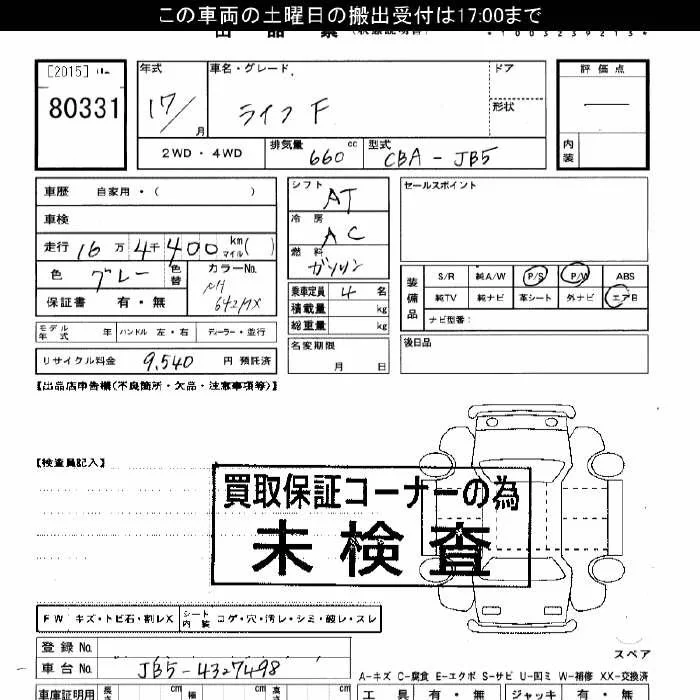 この車両の土曜日の搬出受付は17:00まで
出品票 (状態説明書)
[2015] 年式 車名・グレード ドア 評価点
80331 17/月 ライフ F 形状 —
2WD・4WD 排気量 660 cc 型式 CBA-JB5 内装
車歴 自家用・( ) シフト AT セールスポイント
車検 冷房 AC
走行 16万4千400 km マイル( ) 燃料 ガソリン
色 グレー 色替 カラーNo. NH642MX 装備品 S/R 純A/W P/S P/W ABS
保証書 有・無 乗車定員 4名 純TV 純ナビ 革シート 外ナビ エアB
積載量 kg ナビ型番:
モデル年式 年 ハンドル 左・右 ディーラー・並行 総重量 kg
リサイクル料金 9,540 円 預託済 名変期限 月 日 後日品
【出品店申告欄(不良箇所・欠品・注意事項等)】
【検査員記入】
買取保証コーナーの為
未検査
FW キズ・トビ石・割レX シート内装 コゲ・穴・汚レ・シミ・破レ・スレ
登録No.
スペア
車台No. JB5-4327498
A-キズ C-腐食 E-エクボ S-サビ U-凹ミ W-補修 XX-交換済
車庫証明用 長さ cm 幅 cm 高さ cm 工具 有・無 ジャッキ 有・無